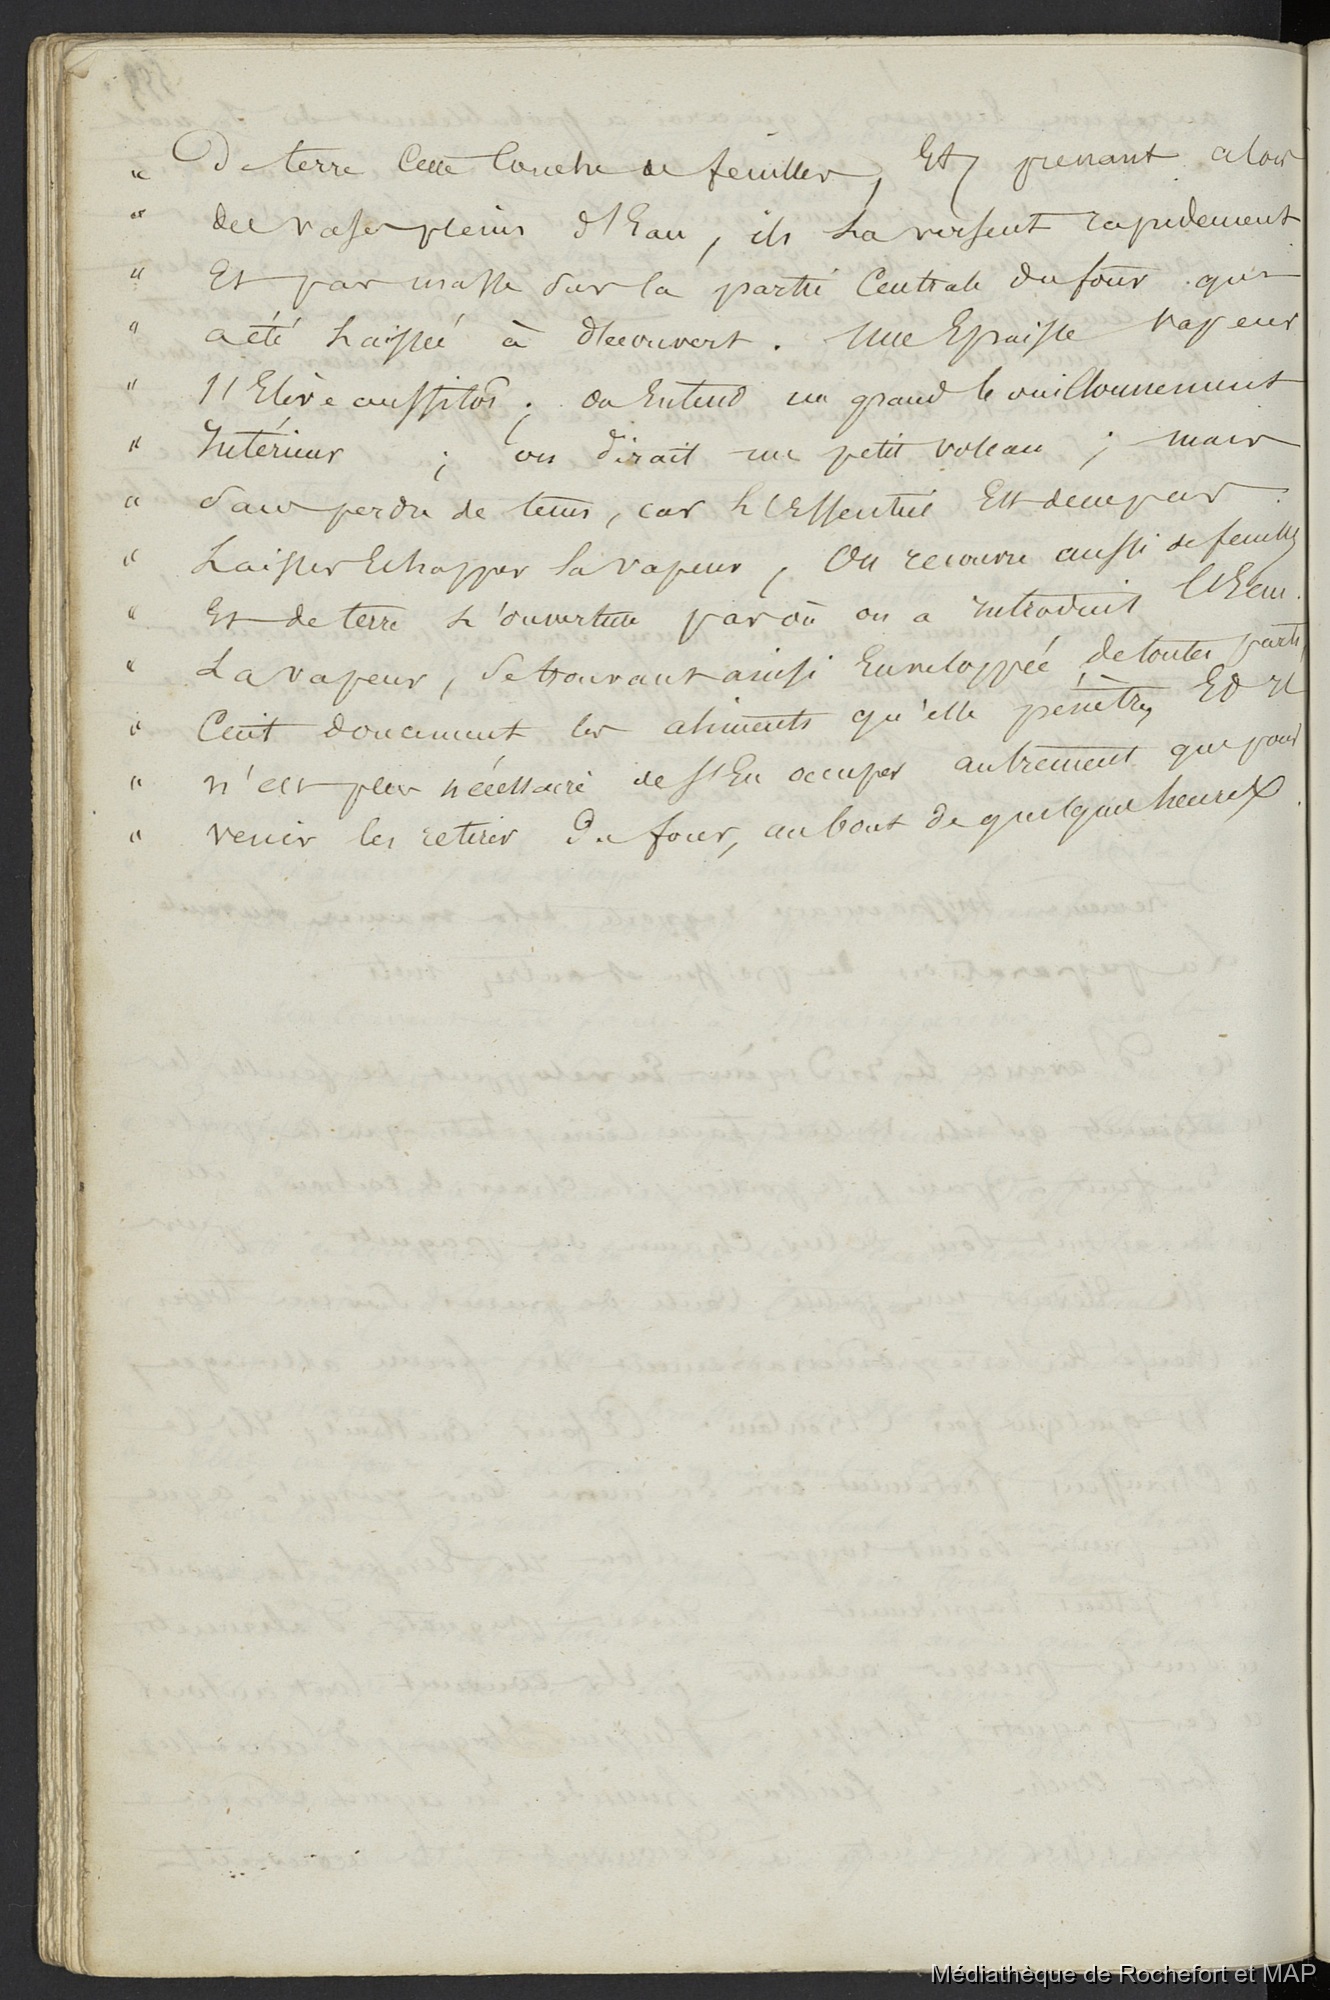 " De terre cette couche de feuilles, Et, prenant alors
" des vases pleins d'Eau, ils La versent rapidement
" Et par masse sur la partie Centrale du four qui
" a été Laissée à découvert. une Epaisse vapeur
" s'Elève aussitôt; on Entend un grand bouillonnement
" Intérieur ; on dirait un petit volcan ; mais
" sans perdre de tems, car L'Essentiel Est de ne pas
" Laisser Echapper la vapeur, On recouvre aussi de feuilles
" Et de terre L'ouverture par où on a introduit l'Eau.
" La vapeur, se trouvant ainsi Enveloppée de toutes parts,
" Cuit doucement les aliments qu'elle pénètre, Et Il
" n'est plus nécessaire de s'En occuper autrement que pour
" venir les retirer du four, au bout de quelques heures
Médiathèque de Rochefort et MAP